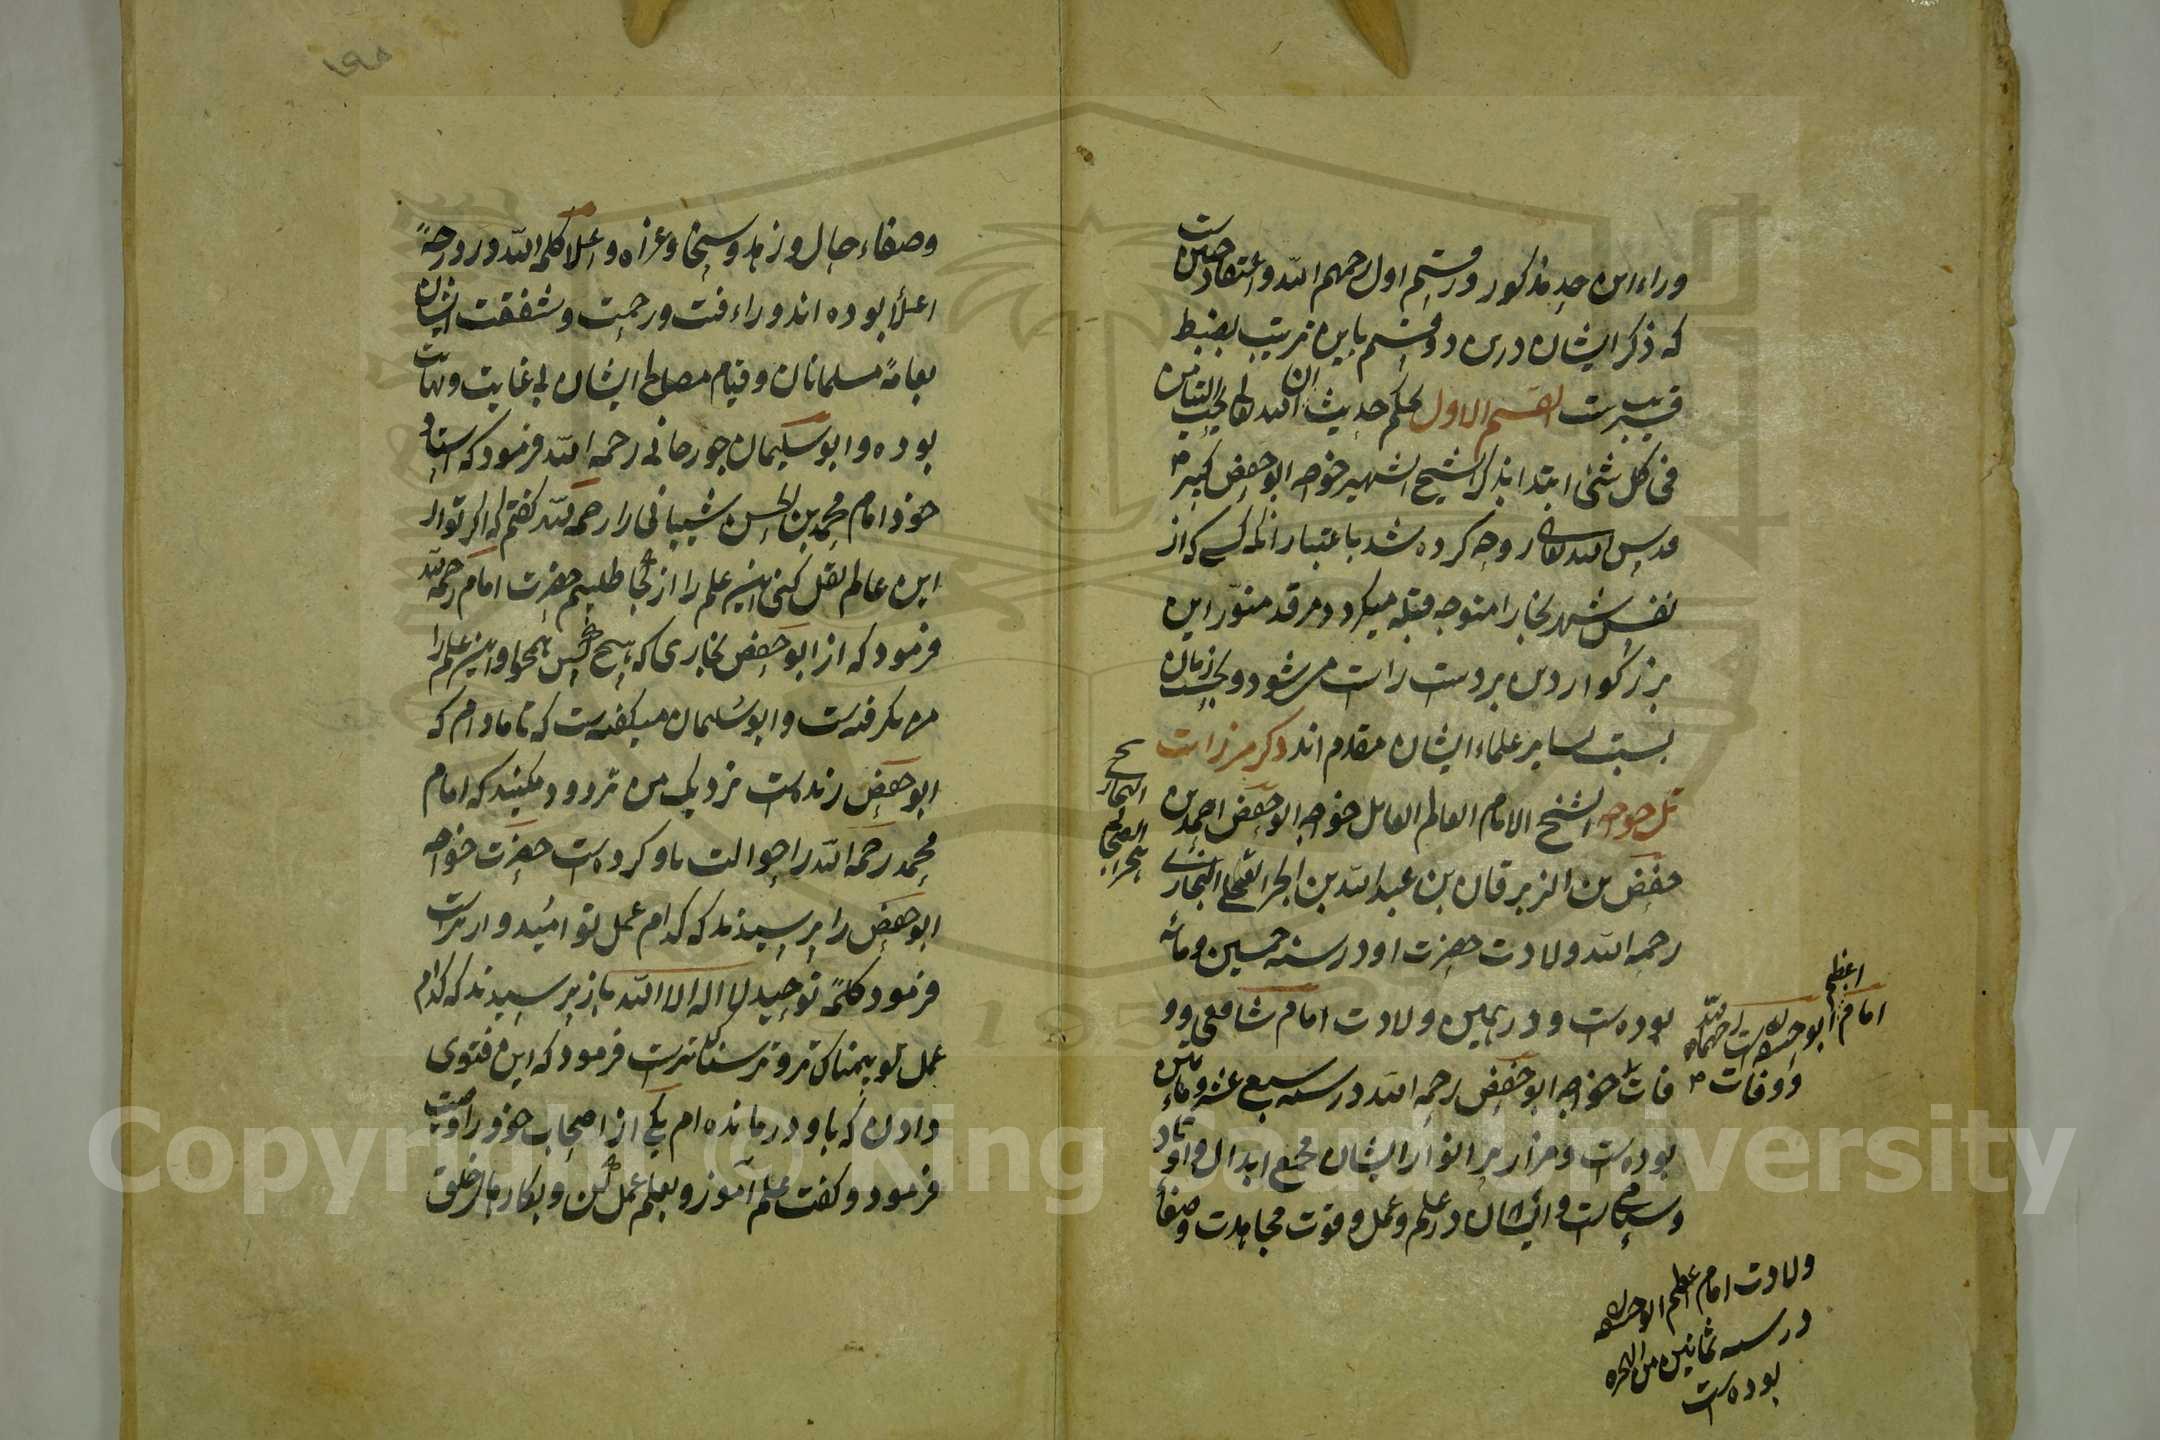 وراء این حد مذکور در قسم اول رحمهم الله و اعتقاد چنین است
که ذکر ایشان درین دو قسم باین ترتیب بضبط
قریبترست القسم الاول بحکم حدیث ان الله تعالی یحب التیامن
فی کل شئی ابتدا بذکر الشیخ الشهیر خواجه ابو حفص کبیر
قدس الله تعالی روحه کرده شد باعتبار آنکه کسی که از
نفس شهر بخارا متوجه قبله میکردد مرقد منور این
بزرگوار دین بر دست راست می شود و بحسب زمان
نسبت بسایر علماء ایشان مقدم اند ذکر مزارات
تل خواجه الشیخ الامام العالم العامل خواجه ابو حفص احمد بن
حفص بن الزبرقان بن عبد الله بن البحر العجلی البخاری
رحمه الله ولادت حضرت او در سنه خمسین و مائه
بوده است و در همین ولادت امام شافعی و و
فات خواجه ابو حفص رحمه الله در سنه سبع عشر و مائتین
بوده است و مزار پر انوار ایشان مجمع ابدال و اوتاد
و سیاح است و ایشان در علم و عمل و قوت مجاهدت و صفاء
اعظم
امام ابو حنیفه است رحمهما الله
و وفات
ولادت امام اعظم ابو حنیفه
در سنه ثمانین من الهجره
بوده است
وصفاء حال و زهد و سخا و غزاه و اعلا کلمة الله در درجهٔ
اعلا بوده اند و راءفت و رحمت و شفقت ایشان
بعامهٔ مسلمانان و قیام مصالح ایشان بی غایت و نهایت
بوده و ابو سلیمان جورجانی رحمه الله فرمود که استاد
خود امام محمد بن الحسن شیبانی را رحمه الله گفتم که اگر تو از
این عالم نقل کنی این علم را از کجا طلبیم حضرت امام رحمه الله
فرمود که از ابو حفص بخاری که هیچ کس همچو او این علم را
من نگرفته است و ابو سلیمان میگفته است که تا مادام که
ابو حفص زنده است نزدیک من تردد مکنید که امام
محمد رحمه الله را حوالت باو کرده است حضرت خواجه
ابو حفص را پرسیدند که کدام عمل تو امیدوار ترست
فرمود کلمهٔ توحید لا اله الا الله باز پرسیدند که کدام
عمل تو بیمناک تر و ترسناک ترست فرمود که این فتوی
دادن که باو درمانده ام یکی از اصحاب خود را وصیت
فرمود و گفت علم آموز و بعلم عمل کن و بکارهای خلق